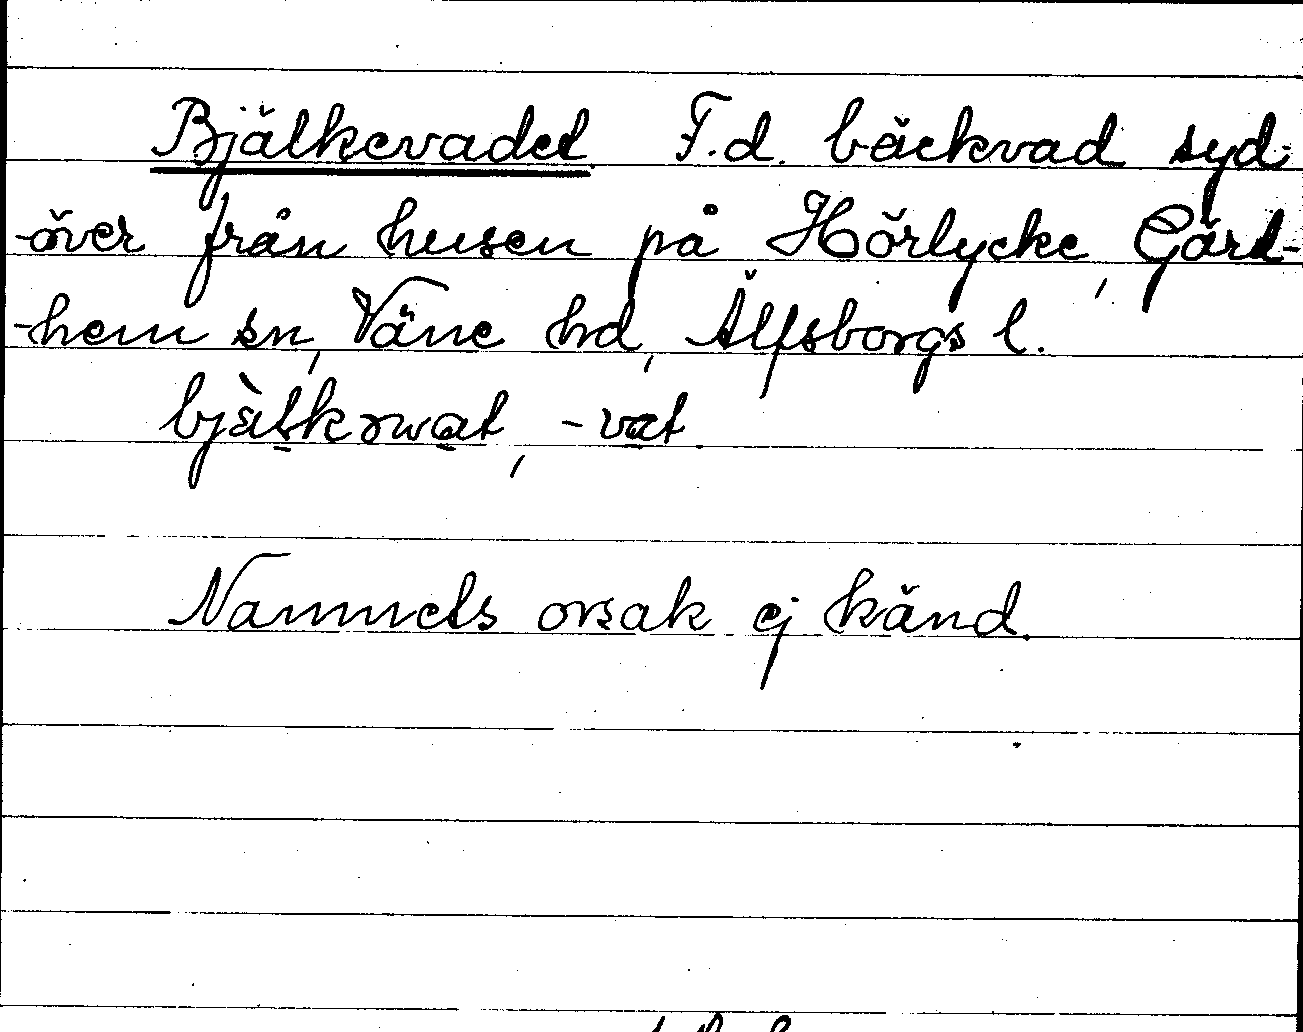 Bjälkevadet. F.d. bäckvad syd-
-över från husen på Hörlycke, Gärd-
-hem sn, Väne hd, Älfsborgs l.
bjälkəwat, -vat.
Namnets orsak ej känd.